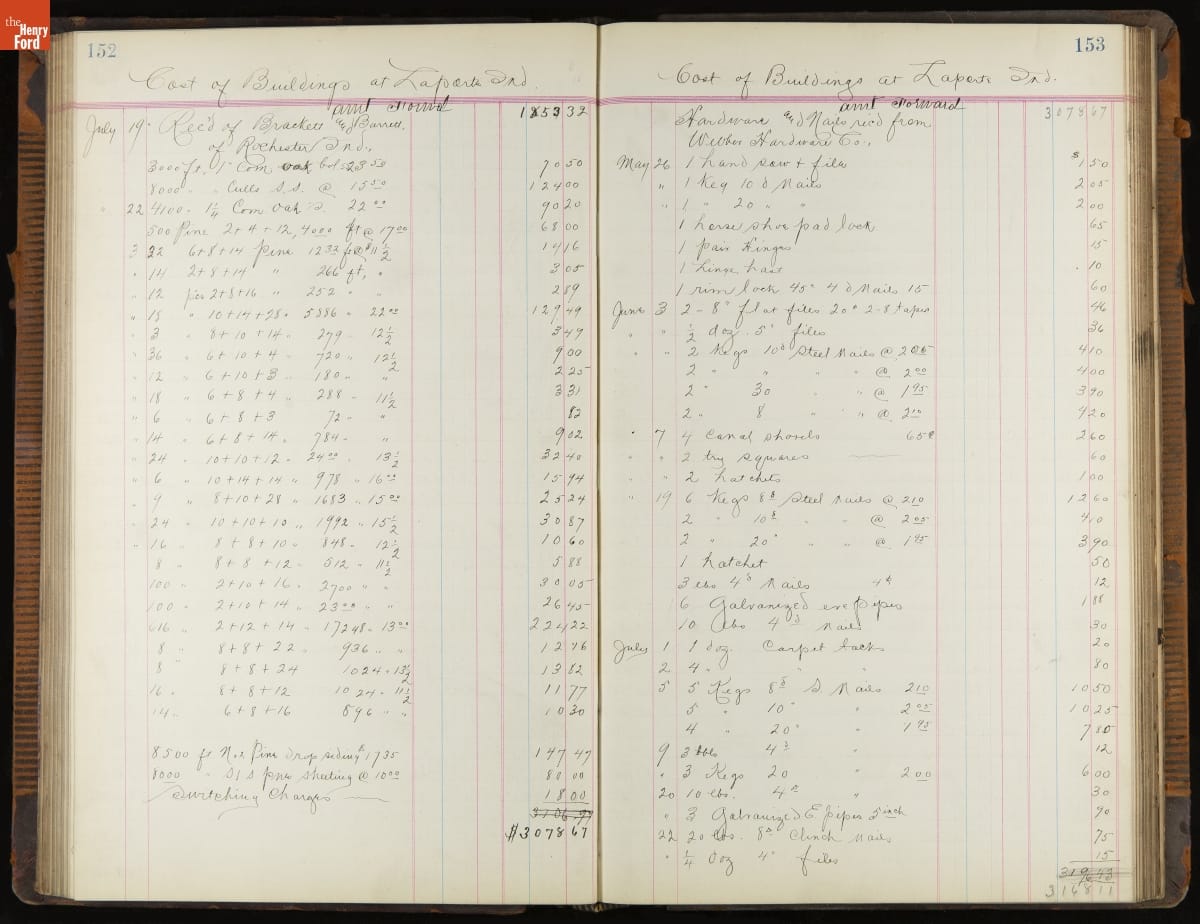 the Henry Ford
152
Cost of Buildings at Laporte Ind.
amt Forwd 1853 32
July 19 Rec'd of Brackett and Barrett,
of Rochester Ind.,
3000 ft, 1" Com oak bds 23 50 70 50
8000 " " Culls S.S. @ 15 50 124 00
" 22 4100 " 1 1/4 Com Oak 22 00 90 20
500 Pine 2+4+12, 4000 ft @ 17 00 68 00
3 22 6+8+14 Pine 1232 ft @ $11 1/2 14 16
" 14 2+8+14 " 266 ft, " 3 05
" 12 pcs 2+8+16 " 252 " " 2 89
" 18 " 10+14+28 " 5886 " 22 00 129 49
" 3 " 8+10+14 " 279 " 12 1/2 3 49
" 36 " 6+10+4 " 720 " 12 1/2 9 00
" 12 " 6+10+3 " 180 " " 2 25
" 18 " 6+8+4 " 288 " 11 1/2 3 31
" 6 " 6+8+3 72 " " 82
" 14 " 6+8+14 " 784 " " 9 02
" 24 " 10+10+12 " 2400 " 13 1/2 32 40
" 6 " 10+14+14 " 978 " 16 00 15 94
" 9 " 8+10+28 " 1683 " 15 00 25 24
" 24 " 10+10+10 " 1992 " 15 1/2 30 87
" 16 " 8+8+10 " 848 " 12 1/2 10 60
8 " 8+8+12 " 512 " 11 1/2 5 88
100 " 2+10+16 " 2700 " " 30 05
100 " 2+10+14 " 2300 " " 26 45
616 " 2+12+14 " 17248 " 13 00 224 22
8 " 8+8+22 " 936 " " 12 16
8 " 8+8+24 1024 " 13 1/2 13 82
16 " 8+8+12 1024 " 11 1/2 11 77
14 " 6+8+16 896 " " 10 30
8500 ft No 2 Pine drop siding $17 35 147 47
8000 " S1S pine sheeting @ 10 00 80 00
Switching Charges 18 00
3106 97
$3078 67
153
Cost of Buildings at Laporte Ind.
amt Forward 3078 67
Hardware and Nails rec'd from
Webber Hardware Co.,
May 26 1 hand saw + file $1 50
" 1 Keg 10 d Nails 2 05
" 1 " 20 " " 2 00
1 horse shoe pad lock 65
1 pair Hinges 15
1 hinge hasp 10
1 rim lock 45c 4 d Nails 15 60
June 3 2 - 8" flat files 20c 2-8 tapes 46
" " 1/2 doz. 5" files 36
" " 2 Kegs 10d Steel Nails @ 2 05 4 10
2 " " " " @ 2 00 4 00
2 " 30 " " @ 1 95 3 90
2 " 8 " " @ 2 10 4 20
" 7 4 Canal Shovels 65c 2 60
" " 2 try squares 60
" " 2 hatchets 1 00
" 19 6 Kegs 8d Steel Nails @ 2 10 12 60
2 " 10d " " @ 2 05 4 10
2 " 20" " " @ 1 95 3 90
1 hatchet 50
3 lbs 4d Nails 4c 12
6 Galvanized eve pipes 1 88
10 lbs 4d Nails 30
July 1 1 doz. Carpet tacks 20
2 4 " " " 80
5 5 Kegs 8d S. Nails 2 10 10 50
5 " 10" " 2 05 10 25
4 " 20" " 1 95 7 80
9 3 lbs 4d " 12
" 3 Kegs 20 " 2 00 6 00
20 10 lbs. 4d " 30
" 3 Galvanized E. pipes 5 inch 90
22 20 lbs. 8d Clinch Nails 75
" 1/4 doz 4" files 15
3168 11